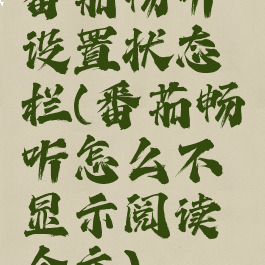 番茄畅听
设置状态
栏(番茄畅
听怎么不
显示阅读